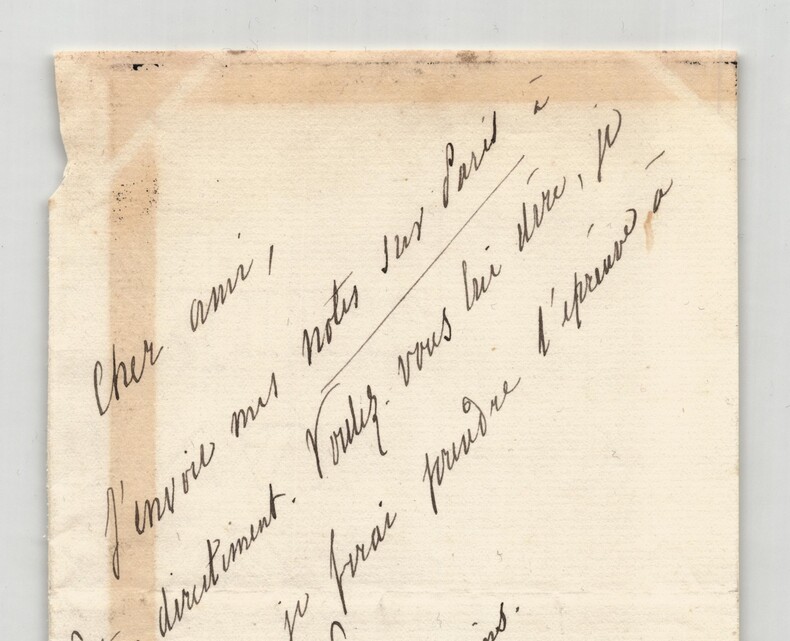 Cher ami,
J'envoie mes notes sur Paris à
directement. Voulez vous lui dire, je
je ferai prendre l'épreuve à